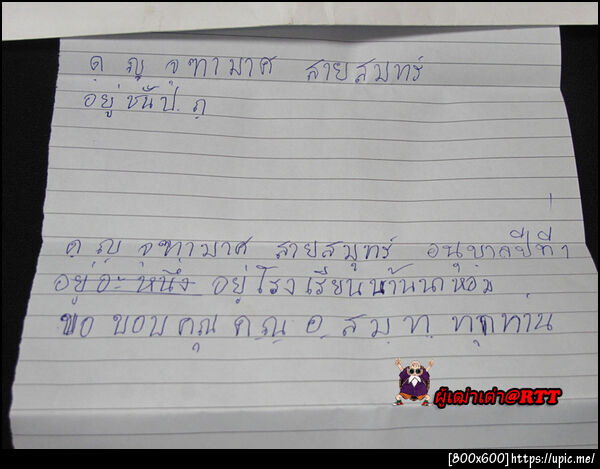 ด ญ จุฑามาศ สายสมุทร์
อยู่ชั้นป. ๓
ด ญ จุฑามาศ สายสมุทร์ อนุบาลปีที่1
อยู่อะ หนึ่ง อยู่โรงเรียนบ้านนาหอม
ขอ ขอบ คุณ ค. ณ. อ. ส. ม. ท. ทุกท่าน
ผู้เฒ่าเต่า@RTT
[800x600]https://upic.me/